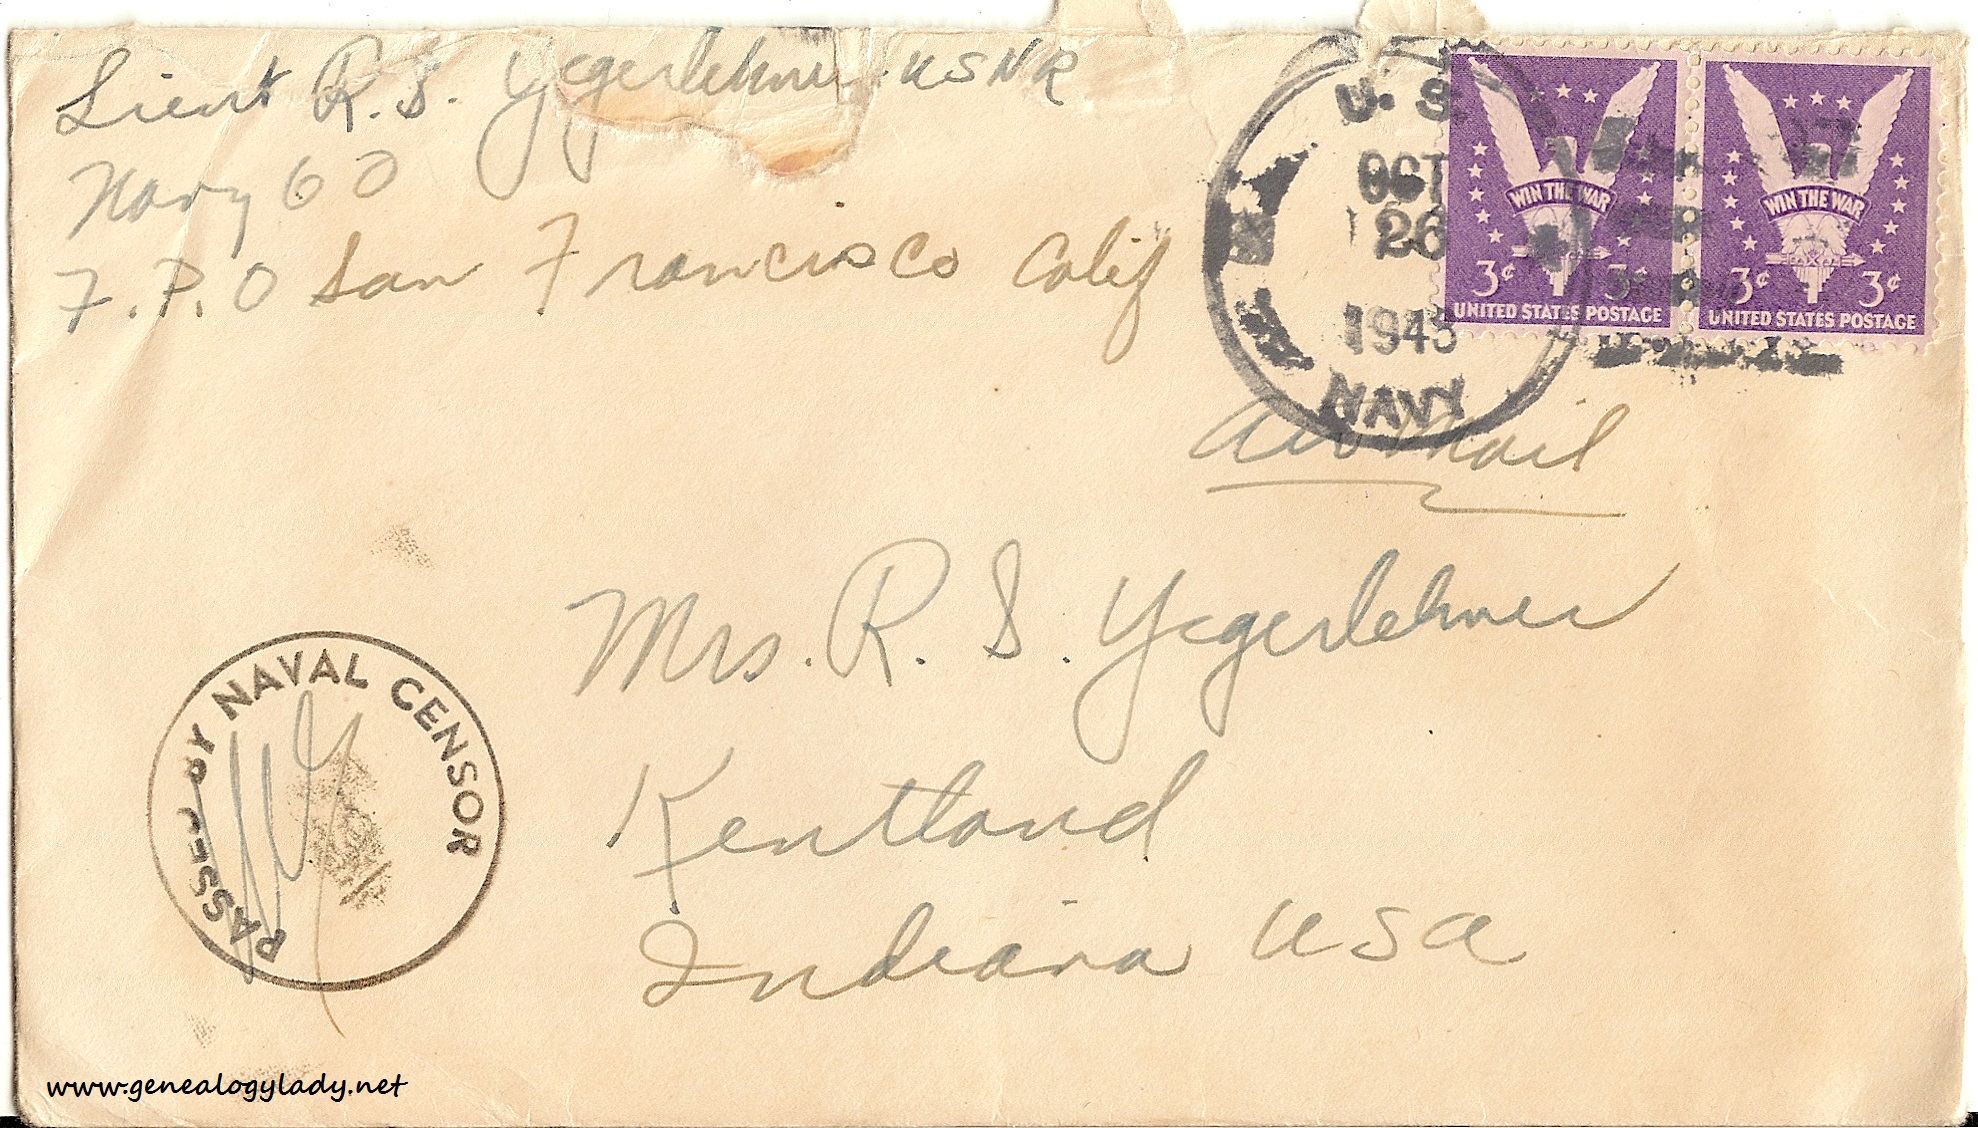 Lieut R. S. Yegerlehner USNR
Navy 60
F.P.O San Francisco Calif
U. S.
OCT
26
1945
NAVY
WIN THE WAR
3¢ 3¢
UNITED STATES POSTAGE
WIN THE WAR
3¢ 3¢
UNITED STATES POSTAGE
Air Mail
Mrs. R. S. Yegerlehner
Kentland
Indiana USA
PASSED BY NAVAL CENSOR
www.genealogylady.net